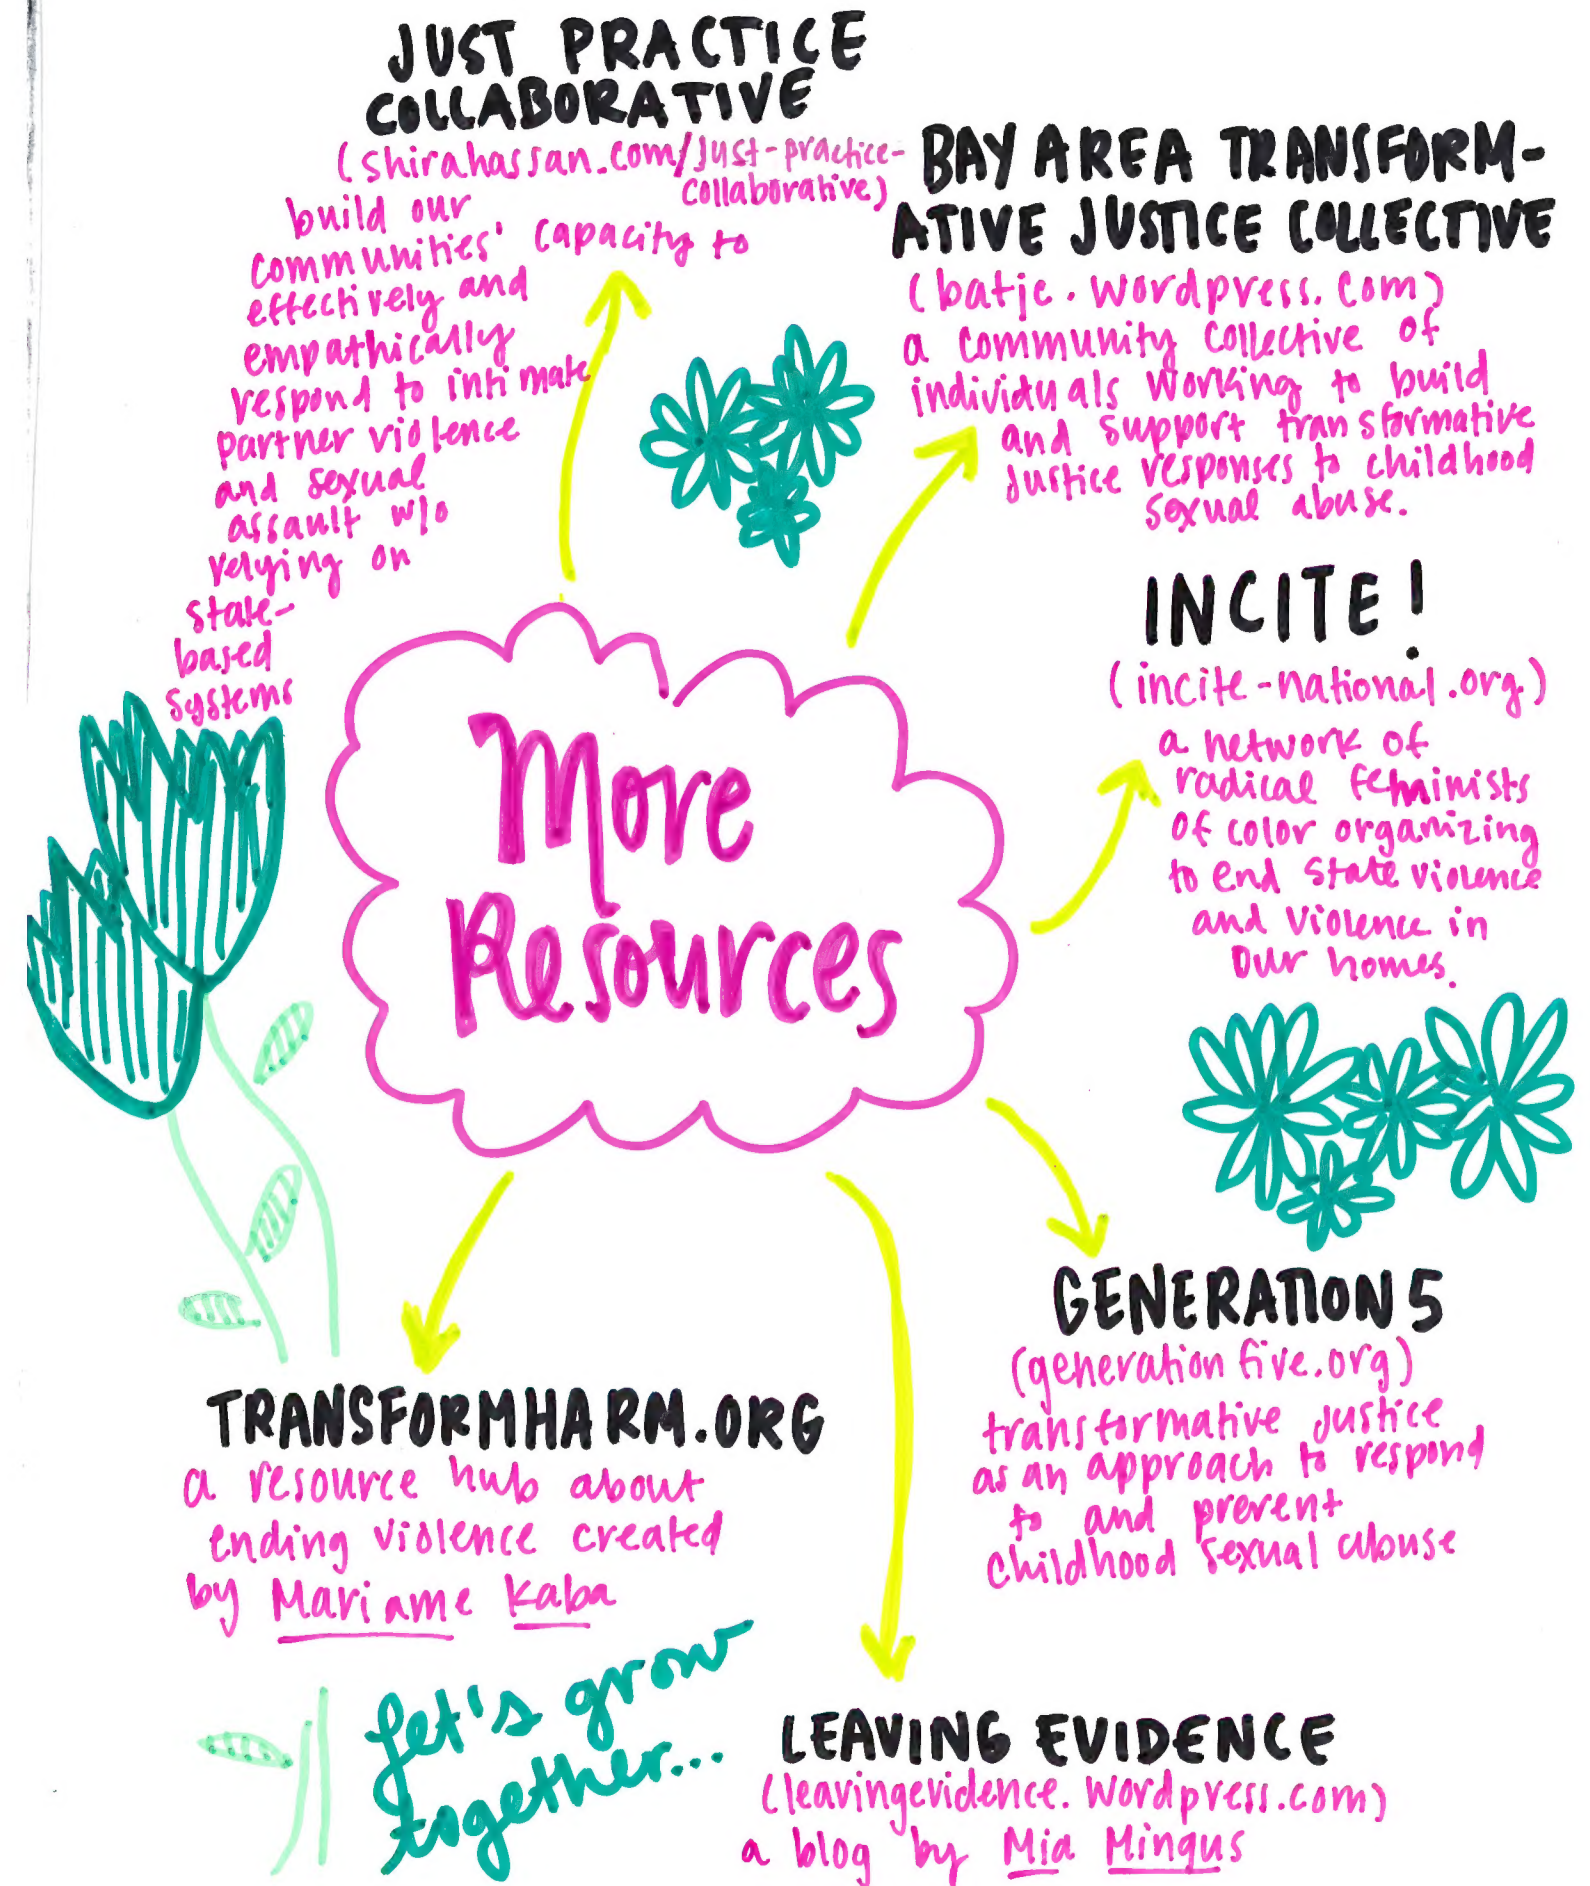 JUST PRACTICE
COLLABORATIVE
(shirahassan.com/just-practice-
collaborative)
build our
communities' capacity to
effectively and
empathically
respond to intimate
partner violence
and sexual
assault w/o
relying on
state-
based
systems
BAY AREA TRANSFORM-
ATIVE JUSTICE COLLECTIVE
(batjc.wordpress.com)
a community collective of
individuals working to build
and support transformative
justice responses to childhood
sexual abuse.
INCITE!
(incite-national.org)
a network of
radical feminists
of color organizing
to end state violence
and violence in
our homes.
More
Resources
GENERATION 5
(generation five.org)
transformative justice
as an approach to respond
to and prevent
childhood sexual abuse
TRANSFORMHARM.ORG
a resource hub about
ending violence created
by Mariame Kaba
Let's grow
together...
LEAVING EVIDENCE
(leavingevidence.wordpress.com)
a blog by Mia Mingus